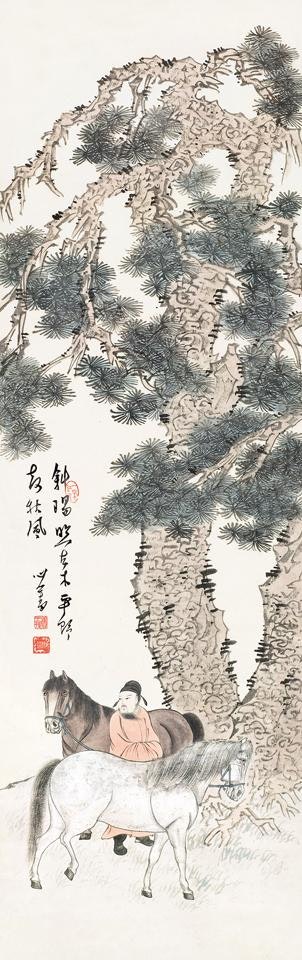 斜陽照古木平野
起秋風
心畬